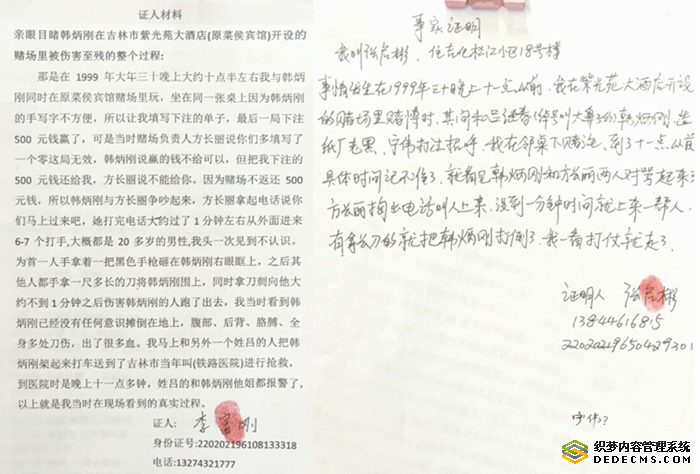 证人材料
亲眼目睹韩炳刚在吉林市紫光苑大酒店(原菜侯宾馆)开设的
赌场里被伤害至残的整个过程:
那是在 1999 年大年三十晚上大约十点半左右我与韩炳
刚同时在原菜侯宾馆赌场里玩,坐在同一张桌上因为韩炳刚
的手写字不方便,所以让我填写下注的单子,最后一局下注
500 元钱赢了,可是当时赌场负责人方长丽说你们多填写了
一个零这局无效,韩炳刚说赢的钱不给可以,但把我下注的
500 元钱还给我,方长丽说不能给你。因为赌场不返还 500
元钱,所以韩炳刚与方长丽争吵起来,方长丽拿起电话说你
们马上过来吧,她打完电话大约过了 1 分钟左右从外面进来
6-7 个打手,大概都是 20 多岁的男性,我头一次见到不认识。
为首一人手拿着一把黑色手枪砸在韩炳刚右眼眶上,之后其
他人都手拿一尺多长的刀将韩炳刚围上,同时拿刀刺向他大
约不到 1 分钟之后伤害韩炳刚的人跑了出去,我当时看到韩
炳刚已经没有任何意识摊倒在地上,腹部、后背、胳膊、全
身多处刀伤,出了很多血。我马上和另外一个姓吕的人把韩
炳刚架起来打车送到了吉林市当年叫(铁路医院)进行抢救,
到医院时是晚上十一点多钟,姓吕的和韩炳刚他姐都报警了,
以上就是我当时在现场看到的真实过程。
证人: 李富刚
身份证号:220202196108133318
电话:13274321777
事实证明
我叫张启彬,住在化松江小区18号楼
事情发生在1999年三十晚上十一点以前,我在紫光苑大酒店开设
的赌场里赌博时,其间和吕继春(绰号叫大春子)的韩炳刚,造
纸厂老黑、宇伟打过招呼,我在邻桌下赌注,到了十一点以前
具体时间记不清了,就看见韩炳刚和方长丽两人对骂起来了
方长丽掏出电话叫人上来,没到一分钟时间就上来一帮人,
有拿长刀的就把韩炳刚打倒了,我一看打仗就走了。
证明人 张启彬
13844616815
22020219650429301
宇伟?
织梦内容管理系统
DEDECMS.COM